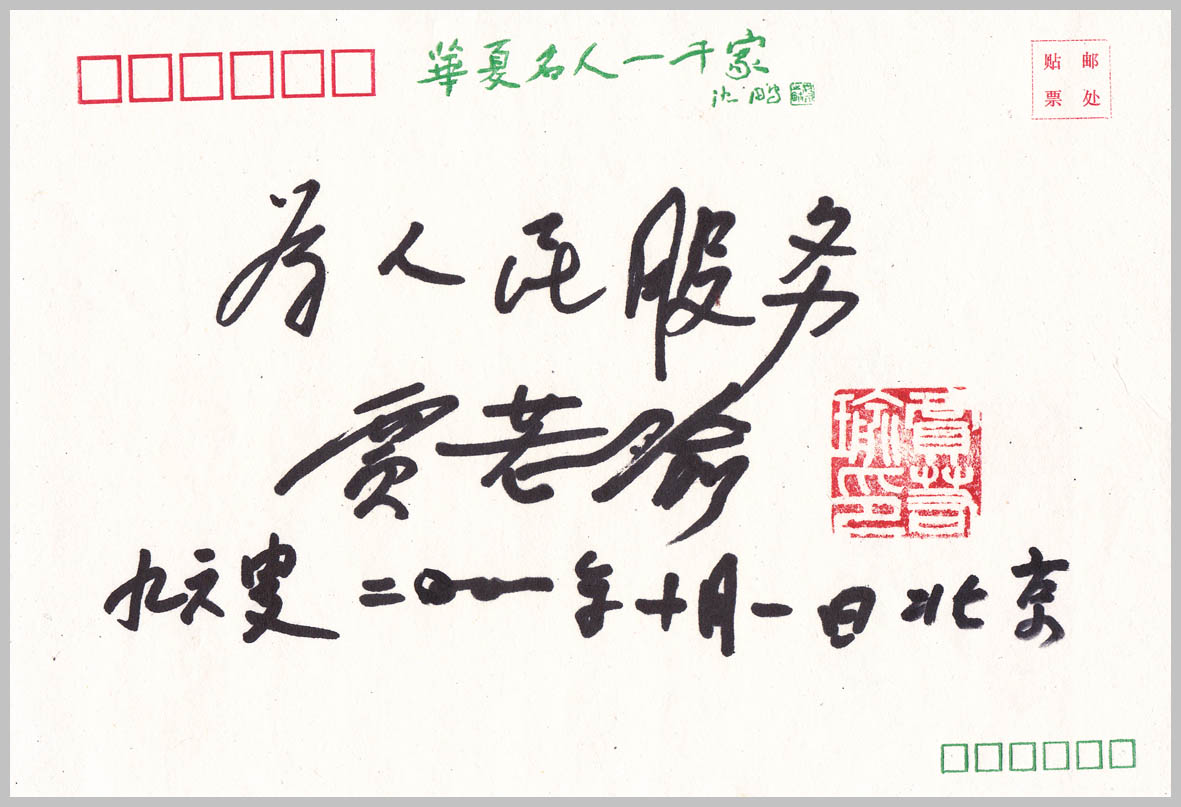 華夏名人一千家
沈鹏
贴邮
票处
为人民服务
贾若瑜
贾若瑜印
九六叟 二〇一一年十月一日北京